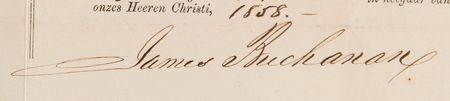 onzes Heeren Christi, 1858.— in hetjaar van
James Buchanan